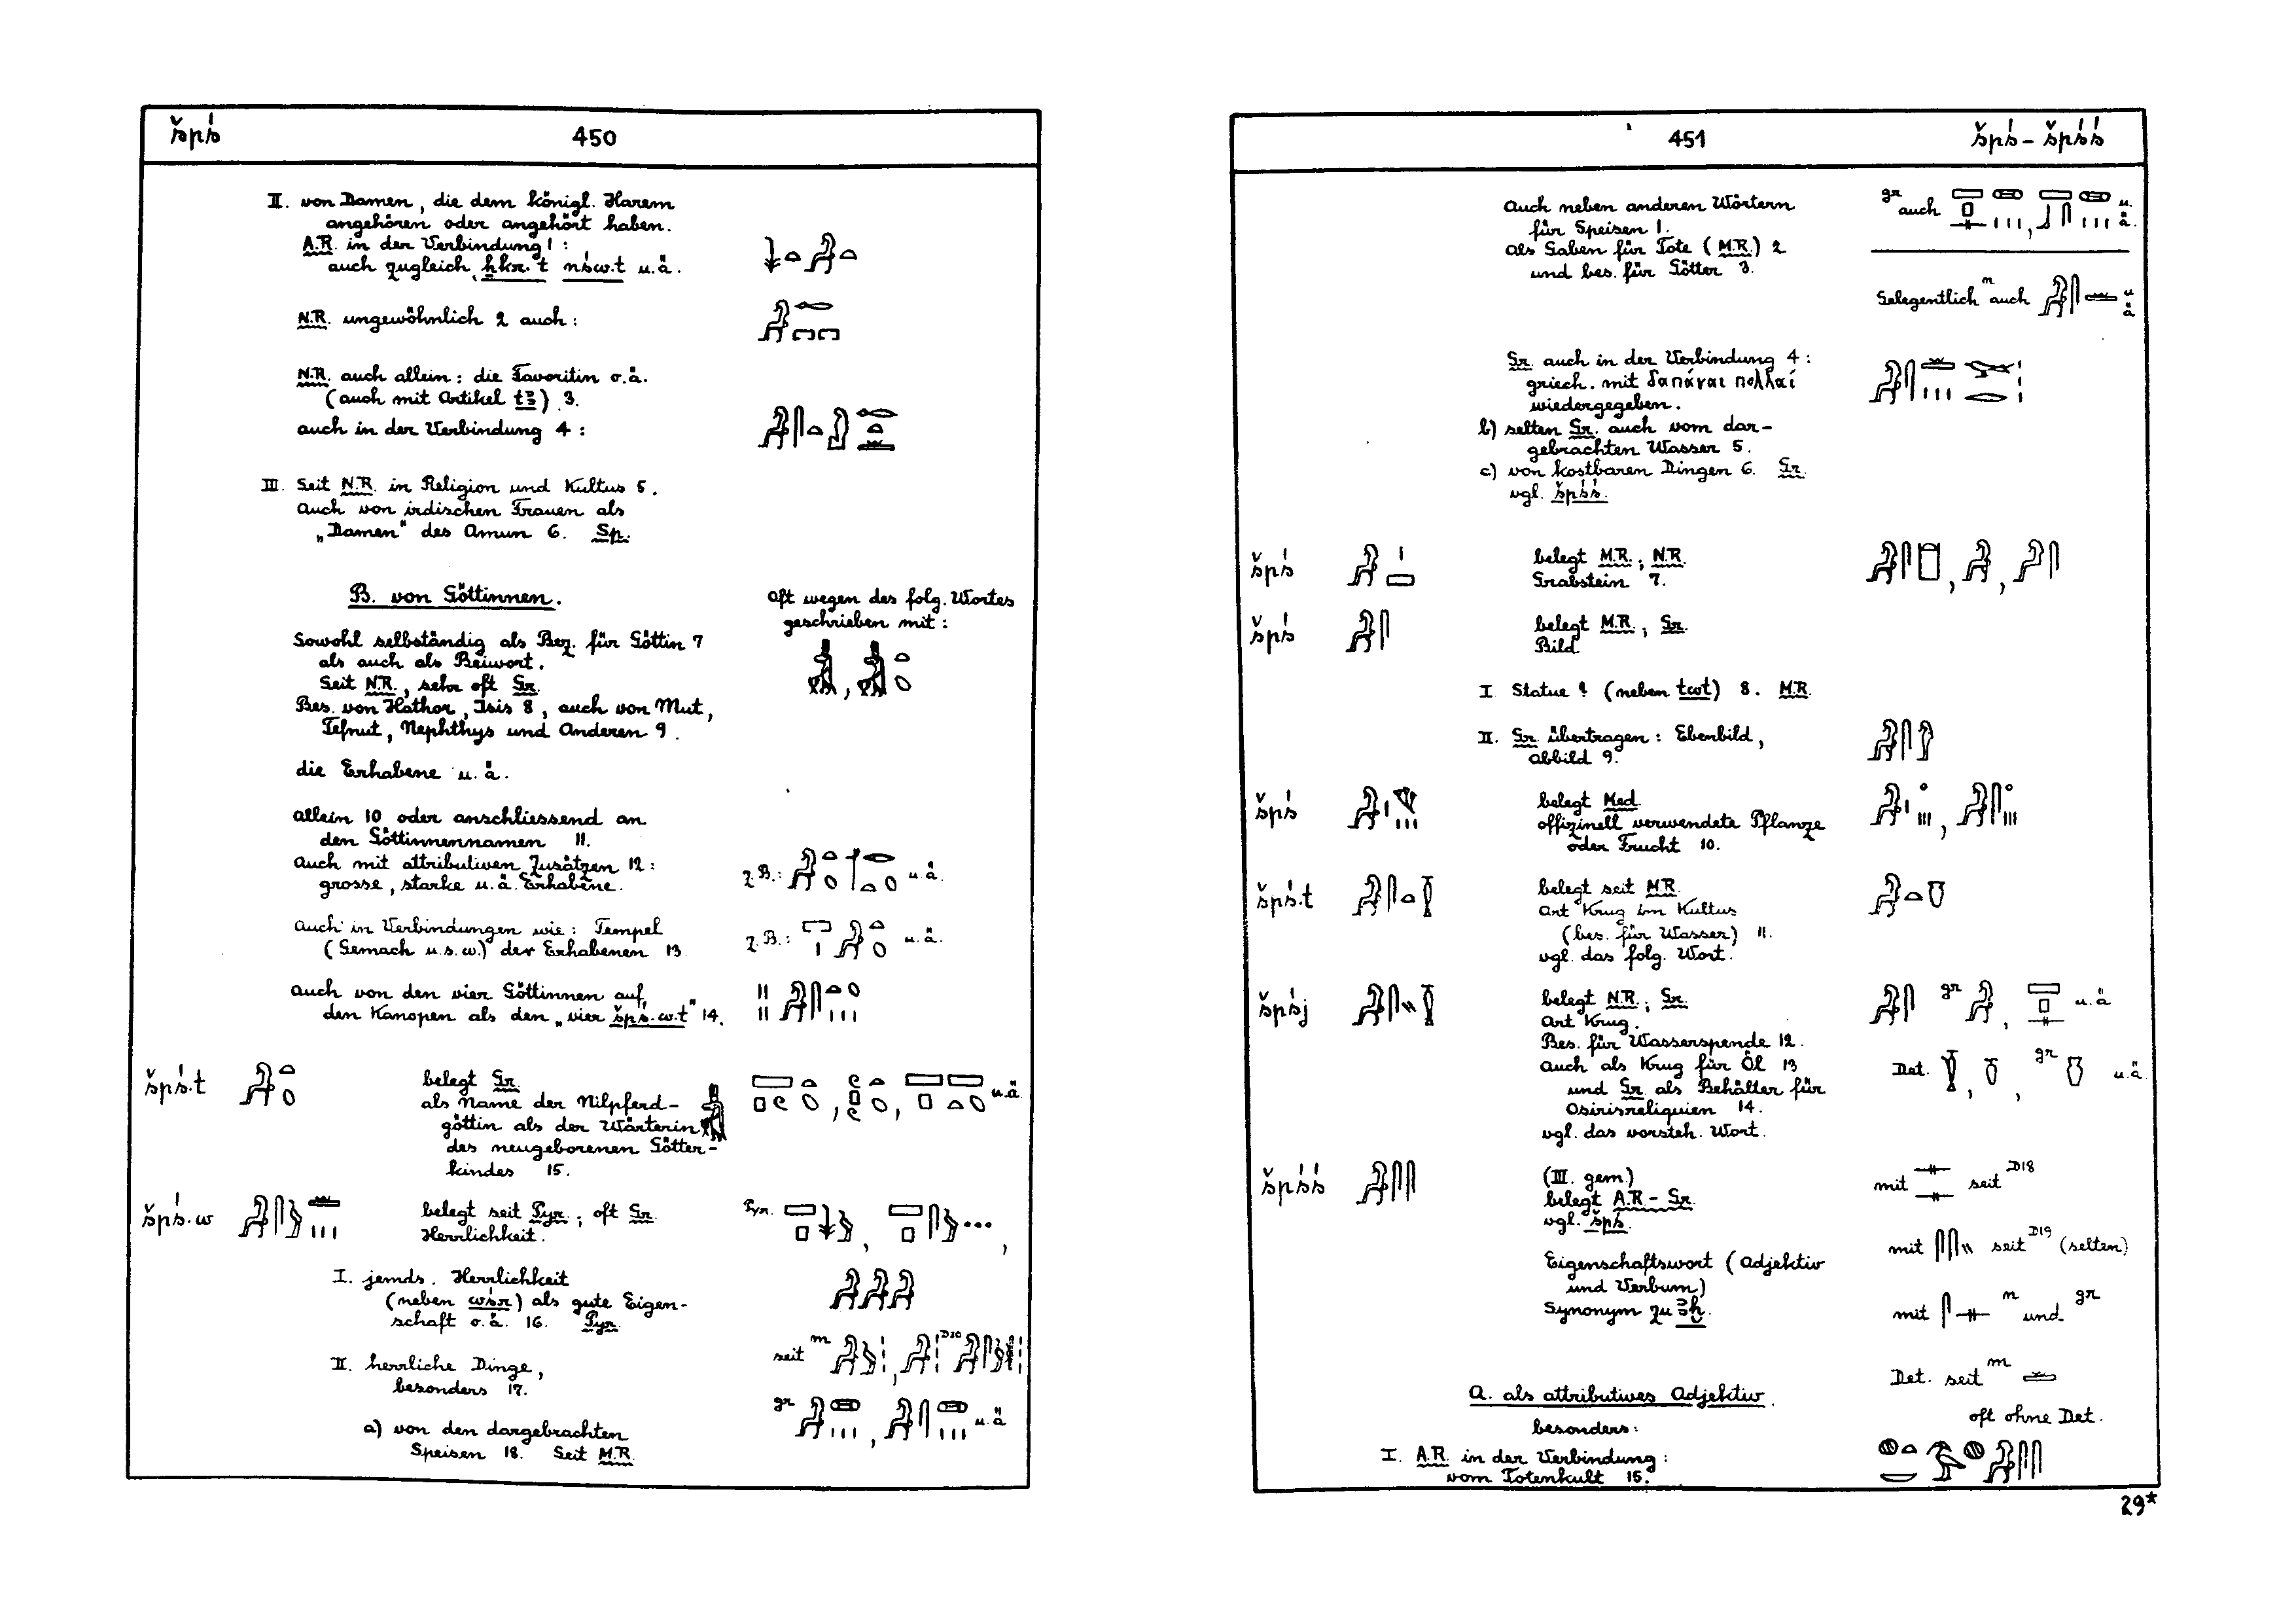 špś
450
II. von Damen, die dem königl. Harem
angehören oder angehört haben.
A.R. in der Verbindung 1:
auch zugleich ẖkr.t nśw.t u.ä.
N.R. ungewöhnlich 2 auch:
N.R. auch allein: die Favoritin o.ä.
(auch mit Artikel tꜣ) 3.
auch in der Verbindung 4:
III. Seit N.R. in Religion und Kultus 5.
Auch von irdischen Frauen als
„Damen" des Amun 6. Sp.
B. von Göttinnen.
Oft wegen des folg. Wortes
geschrieben mit:
Sowohl selbständig als Bez. für Göttin 7
als auch als Beiwort.
Seit N.R., sehr oft Gr.
Bes. von Hathor, Isis 8, auch von Mut,
Tefnut, Nephthys und Anderen 9.
die Erhabene u.ä.
allein 10 oder anschliessend an
den Göttinnennamen 11.
Auch mit attributiven Zusätzen 12:
grosse, starke u.ä. Erhabene.
z.B.: u.ä.
Auch in Verbindungen wie: Tempel
(Gemach u.s.w.) der Erhabenen 13
z.B.: u.ä.
Auch von den vier Göttinnen auf
den Kanopen als den „vier špś.w.t" 14.
špś.t
belegt Gr.
als Name der Nilpferd-
göttin als der Wärterin
des neugeborenen Götter-
kindes 15.
u.ä.
špś.w
belegt seit Pyr.; oft Gr.
Herrlichkeit.
Pyr.
I. jemds. Herrlichkeit
(neben wśr) als gute Eigen-
schaft o.ä. 16. Pyr.
II. herrliche Dinge,
besonders 17.
seit m D20
a) von den dargebrachten
Speisen 18. Seit M.R.
gr u.ä
451
špś - špśś
Auch neben anderen Wörtern
für Speisen 1.
als Gaben für Tote (M.R.) 2
und bes. für Götter 3.
gr auch u.ä.
Gelegentlich m auch u.ä
Gr. auch in der Verbindung 4:
griech. mit δαπάναι πολλαί
wiedergegeben.
b) selten Gr. auch vom dar-
gebrachten Wasser 5.
c) von kostbaren Dingen 6. Gr.
vgl. špśś.
špś
belegt M.R.; N.R.
Grabstein 7.
špś
belegt M.R., Gr.
Bild
I Statue ? (neben twt) 8. M.R.
II. Gr. übertragen: Ebenbild,
Abbild 9.
špś
belegt Med.
offizinell verwendete Pflanze
oder Frucht 10.
špś.t
belegt seit M.R.
Art Krug im Kultus
(bes. für Wasser) 11.
vgl. das folg. Wort.
špśj
belegt N.R.; Gr.
Art Krug.
Bes. für Wasserspende 12.
Auch als Krug für Öl 13
und Gr. als Behälter für
Osirisreliquien 14.
vgl. das vorsteh. Wort.
gr u.ä
Det. gr u.ä
špśś
(III. gem.)
belegt A.R. - Gr.
vgl. špś.
mit seit D18
mit seit D19 (selten)
Eigenschaftswort (Adjektiv
und Verbum)
Synonym zu ꜣḫ.
mit m und gr
Det. seit m
oft ohne Det.
A. als attributives Adjektiv.
besonders:
I. A.R. in der Verbindung:
vom Totenkult 15.
29*